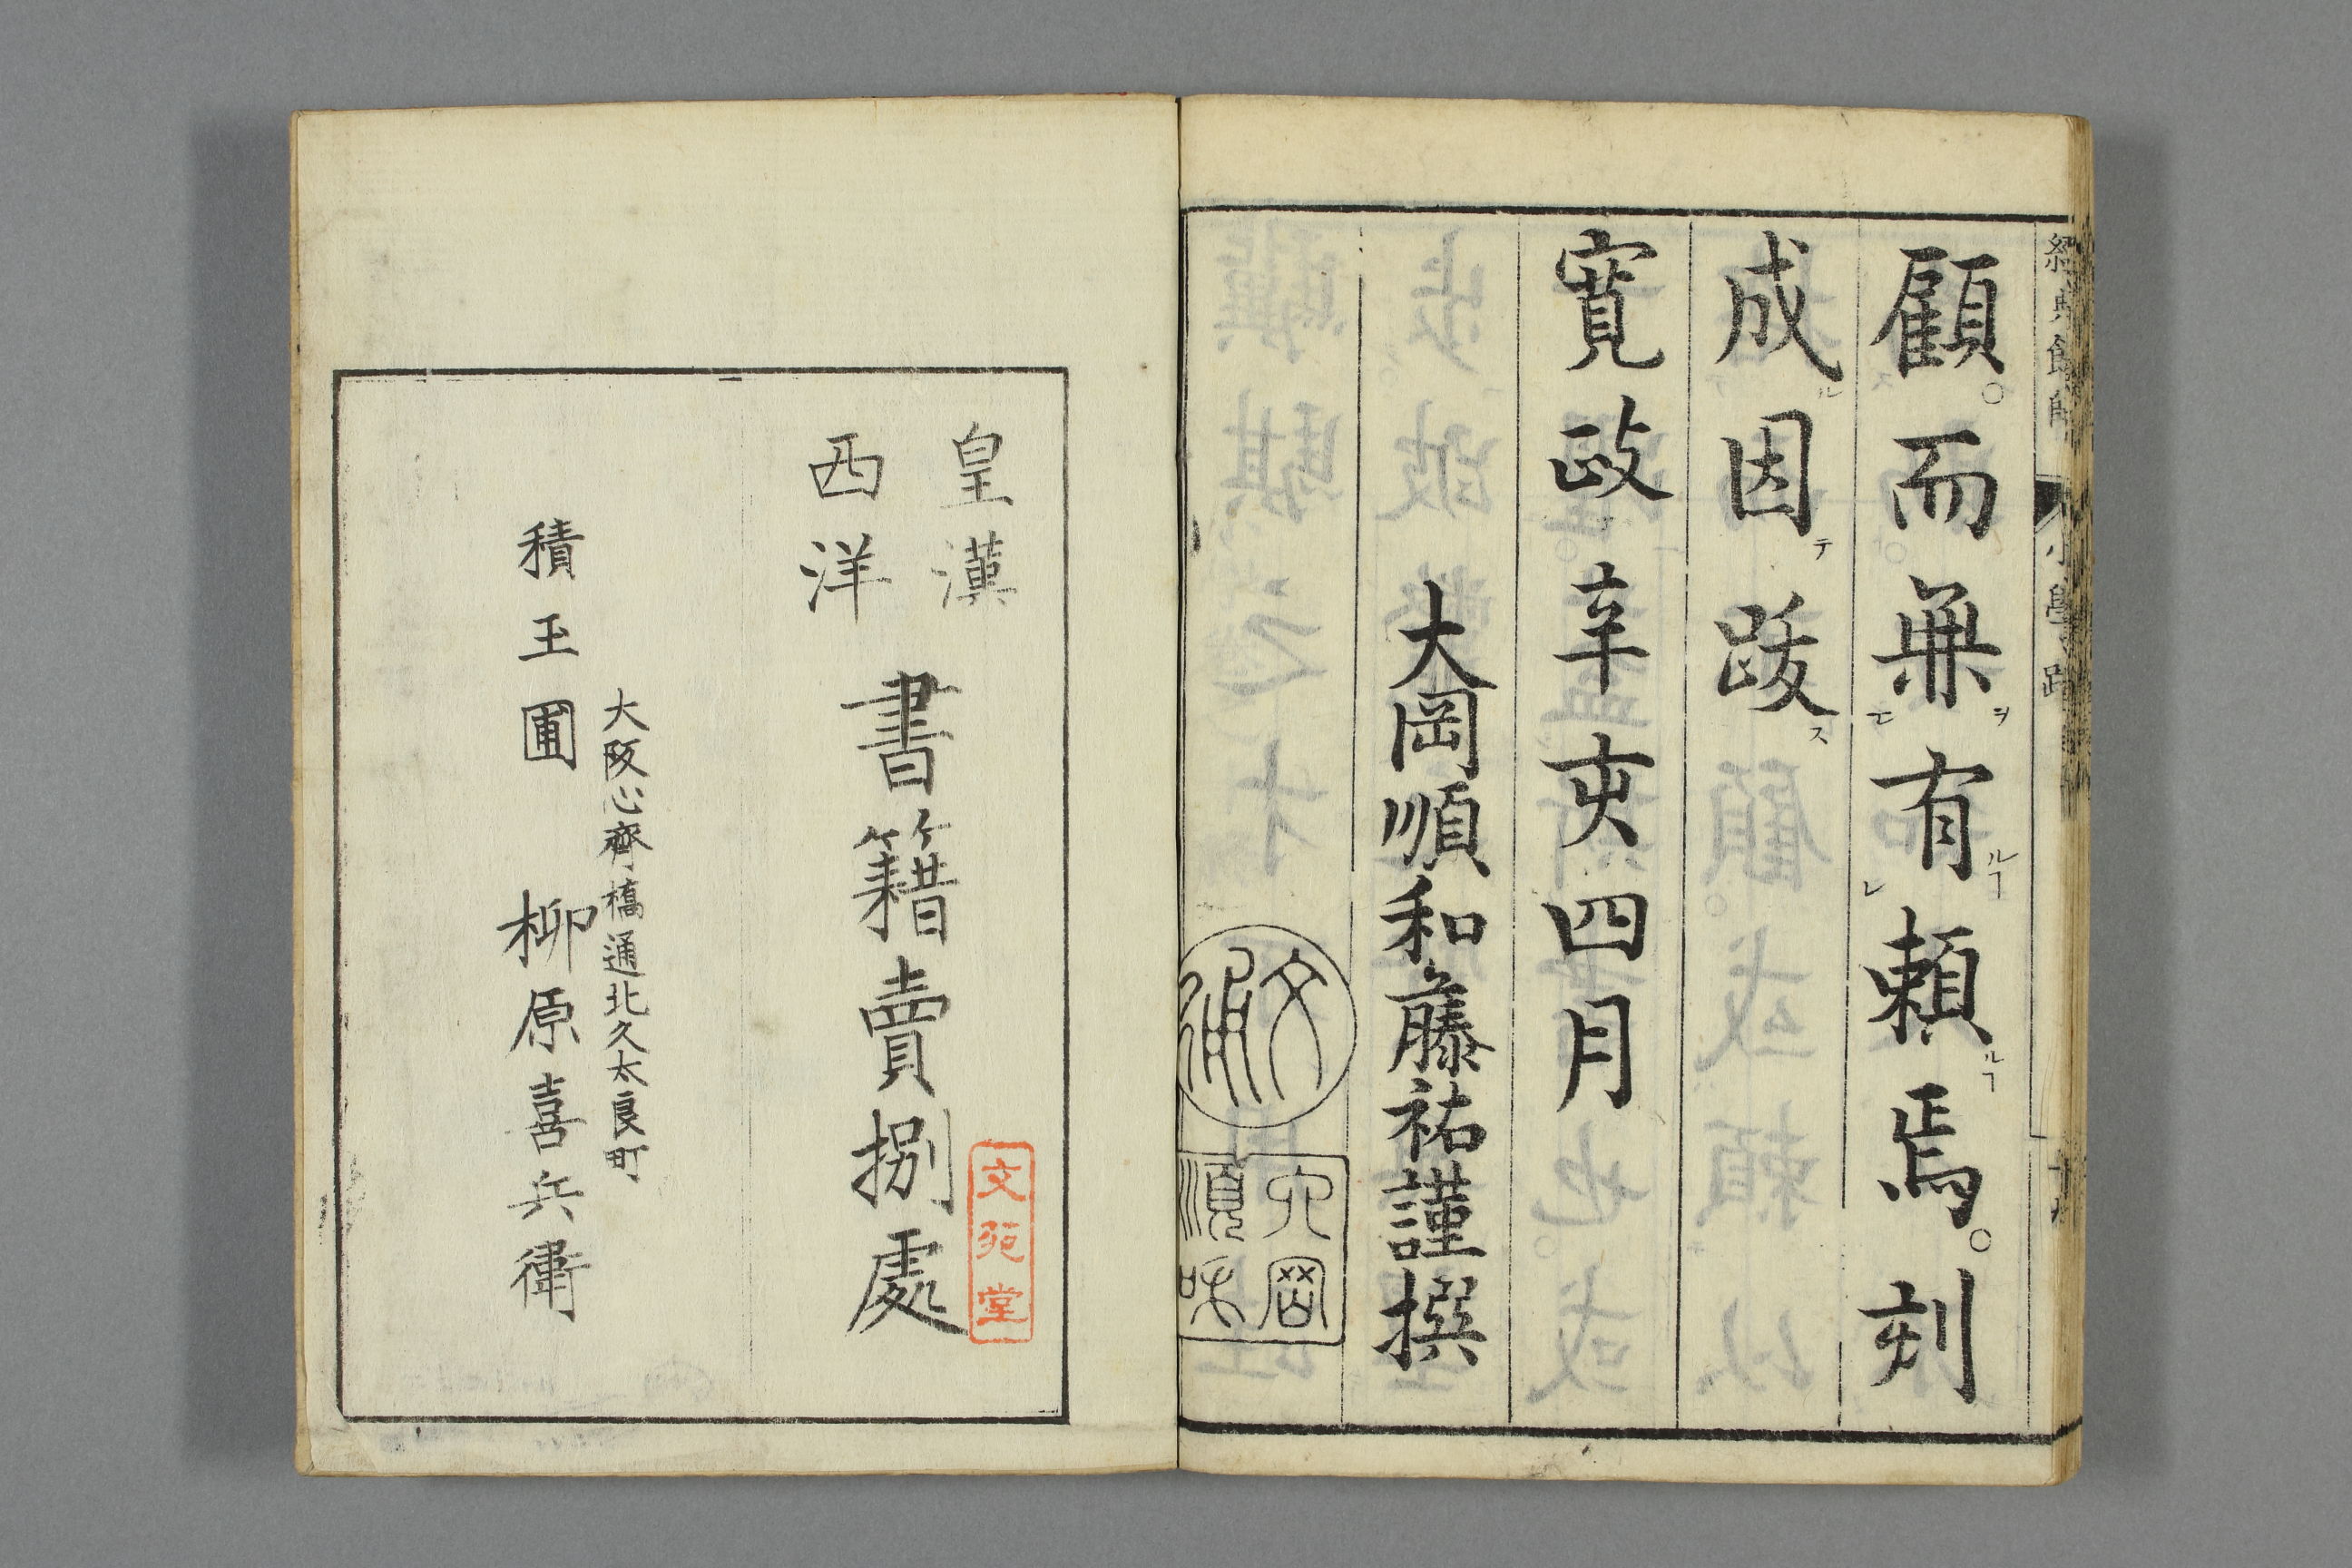 顧。而無有賴焉。刻
成因跋
寬政辛亥四月
大岡順和藤祐謹撰
大岡
順味
皇漢
西洋
書籍賣捌處
文苑堂
大阪心齊橋通北久太良町
積玉圃 柳原喜兵衛